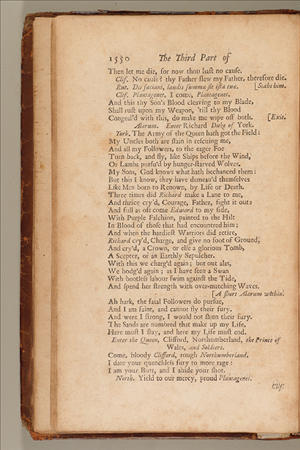 1550 The Third Part of
Then let me die, for now thou hast no cause.
Clif. No cause! thy Father slew my Father, therefore die.
Rut. Dii faciant, laudis summa sit ista tuæ. [Stabs him.
Clif. Plantagenet, I come, Plantagenet,
And this thy Son's Blood cleaving to my Blade,
Shall rust upon my Weapon, 'till thy Blood
Congeal'd with this, do make me wipe off both. [Exit.
Alarum. Enter Richard Duke of York.
York. The Army of the Queen hath got the Field:
My Uncles both are slain in rescuing me,
And all my Followers, to the eager Foe
Turn back, and fly, like Ships before the Wind,
Or Lambs pursu'd by hunger-starved Wolves.
My Sons, God knows what hath bechanced them:
But this I know, they have demean'd themselves
Like Men born to Renown, by Life or Death.
Three times did Richard make a Lane to me,
And thrice cry'd, Courage, Father, fight it out:
And full as oft came Edward to my side,
With Purple Falchion, painted to the Hilt
In Blood of those that had encountred him:
And when the hardiest Warriors did retire,
Richard cry'd, Charge, and give no foot of Ground,
And cry'd, a Crown, or else a glorious Tomb,
A Scepter, or an Earthly Sepulcher.
With this we charg'd again; but out alas,
We bodg'd again; as I have seen a Swan
With bootless labour swim against the Tide,
And spend her strength with over-matching Waves.
[A short Alarum within.
Ah hark, the fatal Followers do pursue,
And I am faint, and cannot fly their fury.
And were I strong, I would not shun their fury.
The Sands are numbred that make up my Life,
Here must I stay, and here my Life must end.
Enter the Queen, Clifford, Northumberland, the Prince of
Wales, and Soldiers.
Come, bloody Clifford, rough Northumberland,
I dare your quenchless fury to more rage:
I am your Butt, and I abide your shot.
North. Yield to our mercy, proud Plantagenet.